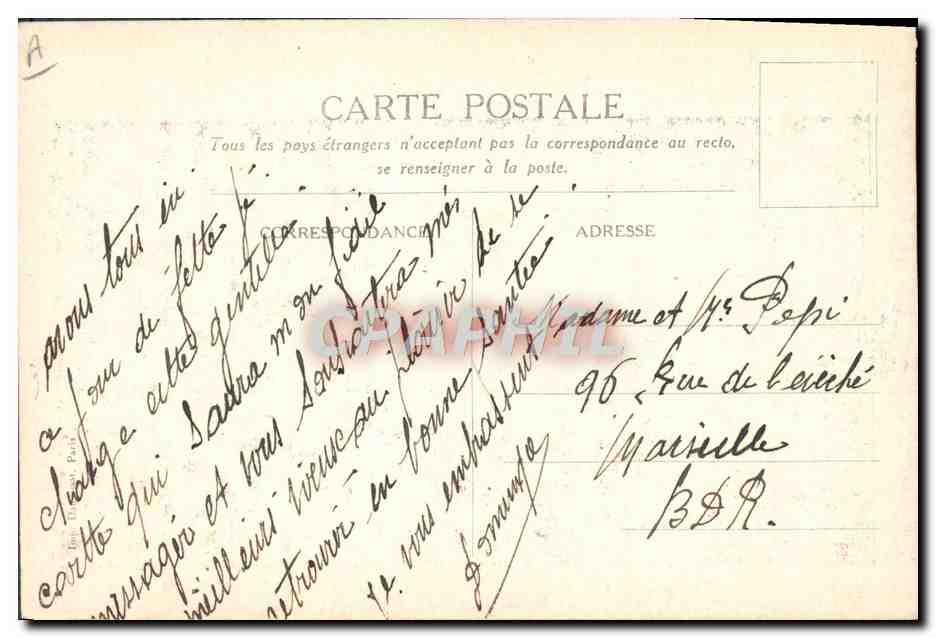 A
CARTE POSTALE
Tous les pays étrangers n'acceptant pas la correspondance au recto,
se renseigner à la poste.
CORRESPONDANCE
ADRESSE
avons tous
ce jour de fette je
charge cette gentille
cartte qui saura mon fidèle
messager et vous souhaitera mes
meilleurs voeux au plaisir de se
retrouver en bonne santée
je vous embrassent
Madame et Mr Pepi
96 Rue de l'évêché
Marseille
BDR.
Paris
CPAPHIL